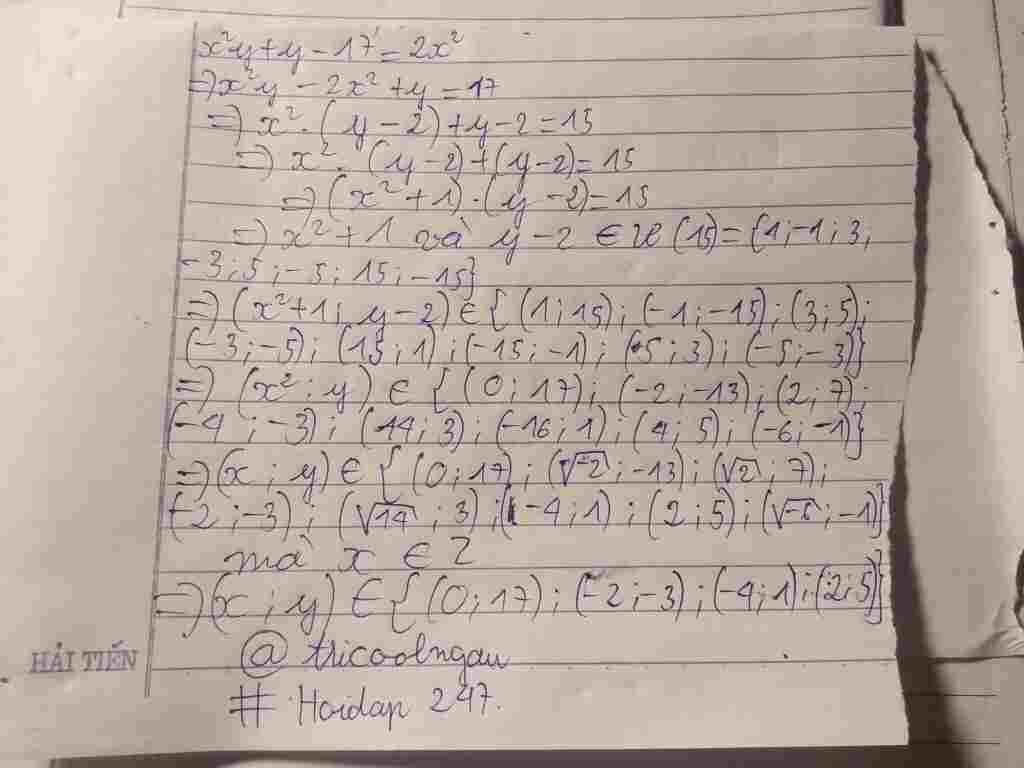 x²y+y-17=2x²
⇒x²y-2x²+y=17
⇒ x².(y-2)+y-2=15
⇒ x².(y-2)+(y-2)=15
⇒(x²+1).(y-2)=15
⇒ x²+1 và y-2 ∈ Ư (15)={1;-1;3;
-3;5;-5;15;-15}
⇒(x²+1; y-2)∈{(1;15);(-1;-15);(3;5);
(-3;-5);(15;1);(-15;-1);(5;3);(-5;-3)}
⇒ (x²;y) ∈ {(0;17);(-2;-13);(2;7);
(-4;-3);(14;3);(-16;1);(4;5);(-6;-1)}
⇒(x;y)∈{(0;17);(√-2;-13);(√2;7);
(-2;-3);(√14;3);(-4;1);(2;5);(√-6;-1)}
mà x ∈ Z
⇒(x;y)∈{(0;17);(-2;-3);(-4;1);(2;5)}
HẢI TIẾN
@ tricoolngau
# Hoidap 247.